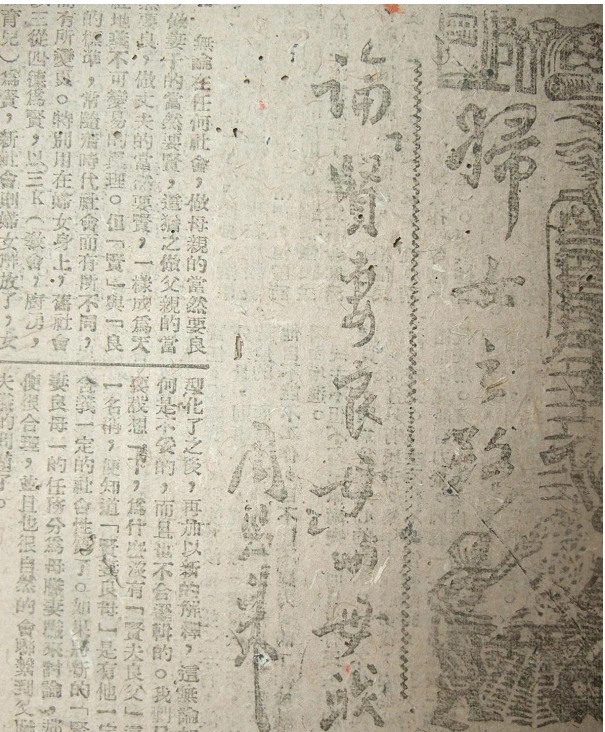 婦女之路
論賢妻良母與母職
周恩來
無論在任何社會，做母親的當然要良
做妻子的當然要賢，這猶之做父親的當
然要良，做丈夫的當然要賢，一樣成爲天
經地義不可變易的眞理。但「賢」與「良
的標準，常隨着時代社會而有所不同，
而有所變異。特別用在婦女身上，舊社會
以三從四德爲賢，以三K（敎會，廚房，
育兒）爲賢，新社會則婦女解放了，女
型化了之後，再加以新的解釋，這無論
何是不妥的，而且也不合邏輯的。我們只
要設想一下，爲什麼沒有「賢夫良父」這
一名稱，便知道「賢妻良母」是有他一定
含義一定的社會性質了。如果將新的「賢
妻良母」的任務分爲母職妻職來討論，那
便很合理，並且也很自然的會聯繫到父職
夫職的問題了。